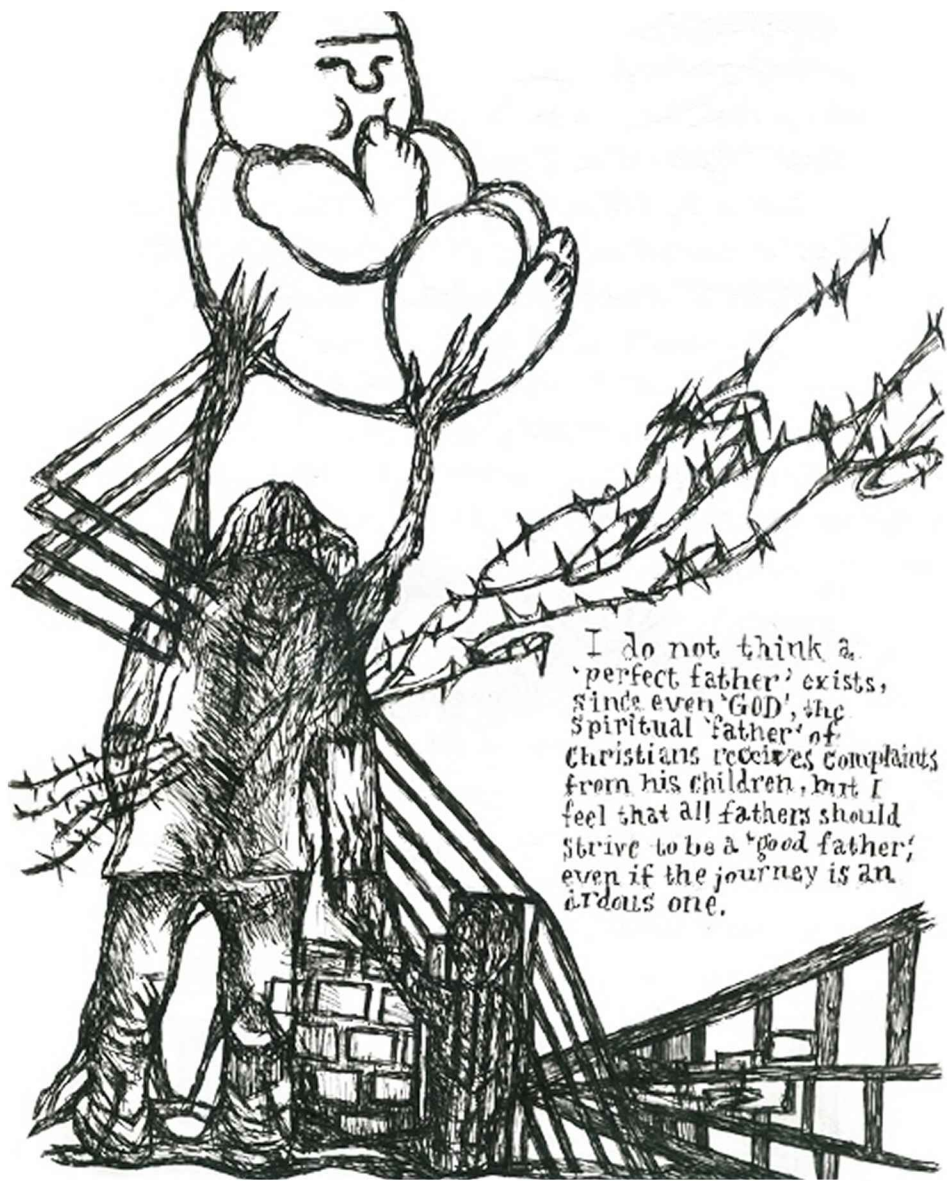 I do not think a
'perfect father' exists,
since even 'GOD', the
spiritual 'father' of
christians receives complaints
from his children, but I
feel that all fathers should
strive to be a 'good father',
even if the journey is an
ardous one.